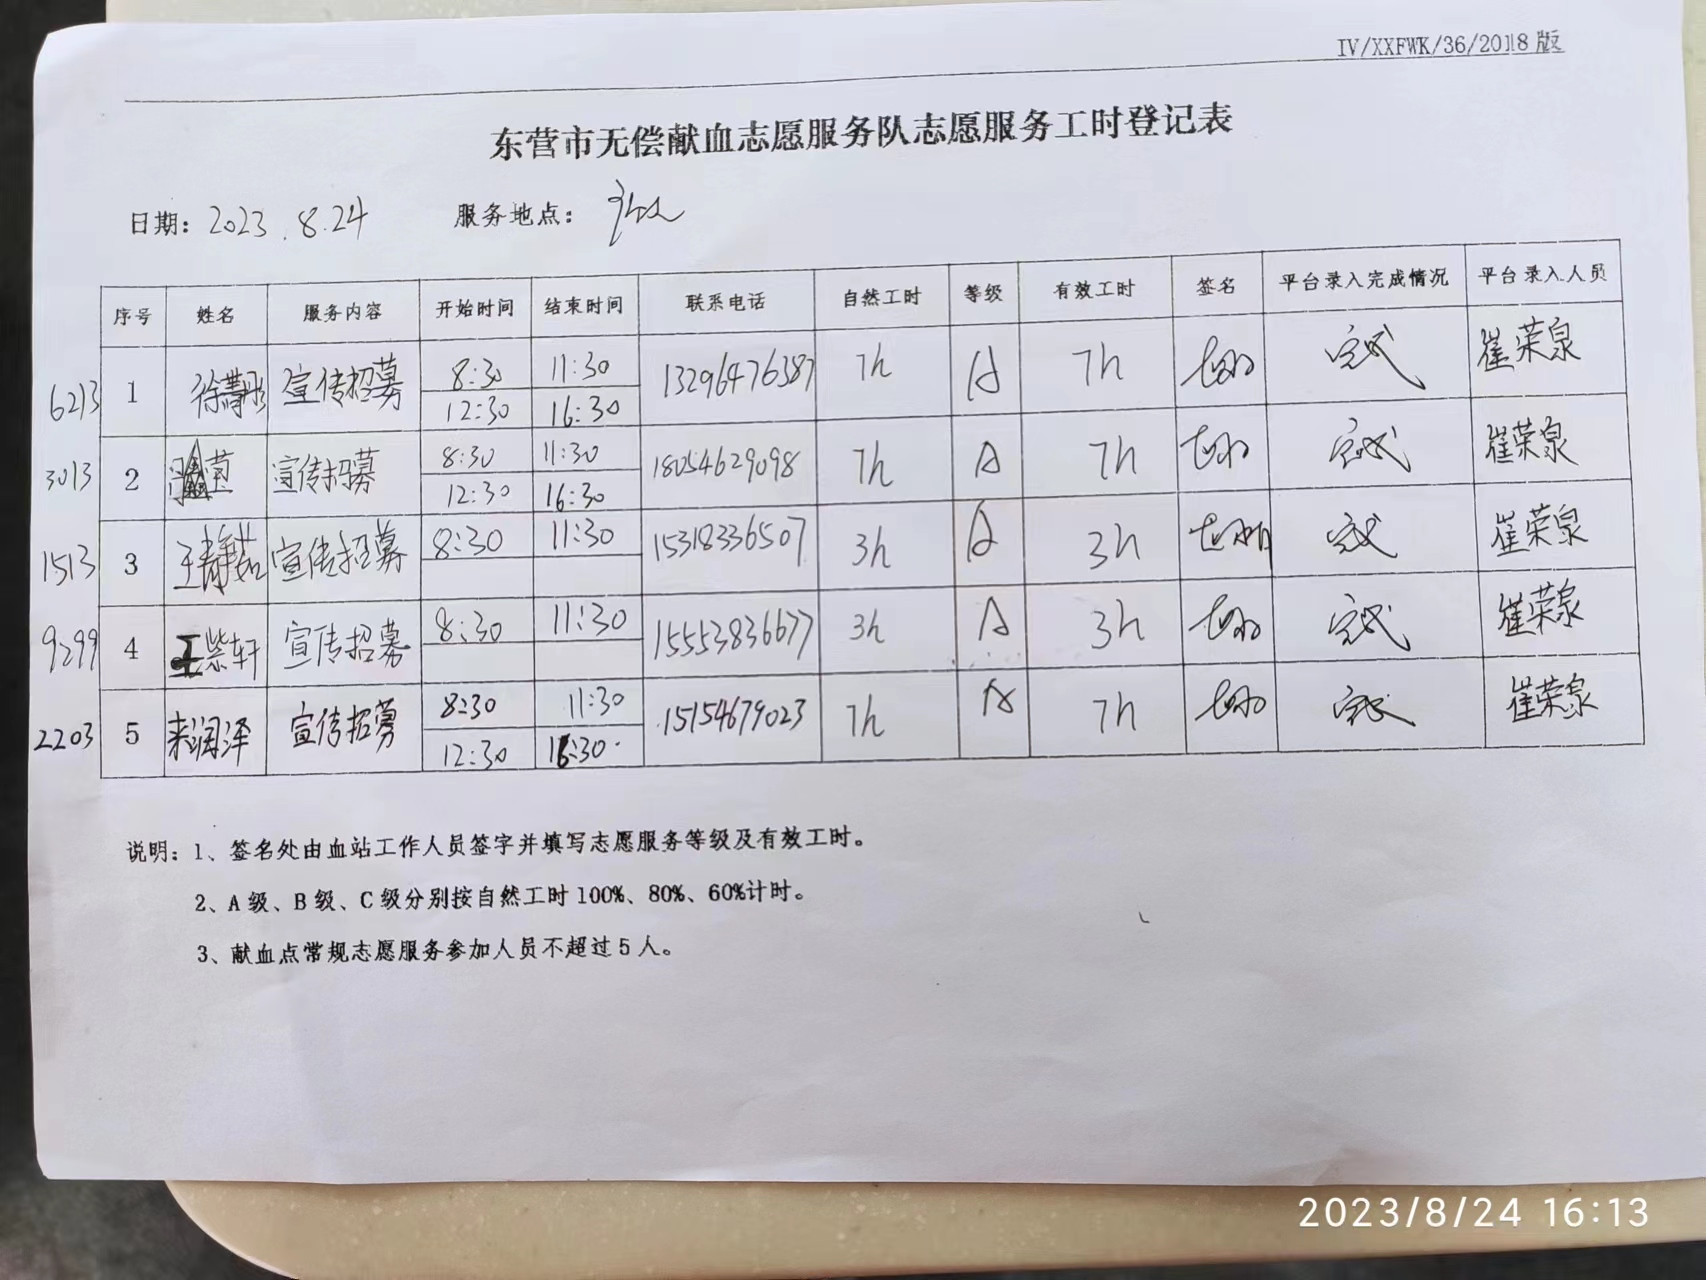 IV/XXFWK/36/2018版
东营市无偿献血志愿服务队志愿服务工时登记表
日期: 2023.8.24 服务地点:
序号 姓名 服务内容 开始时间 结束时间 联系电话 自然工时 等级 有效工时 签名 平台录入完成情况 平台录入人员
6213 1 徐慧彤 宣传招募 8:30 11:30 13296476387 7h A 7h 完成 崔荣泉
12:30 16:30
3013 2 宣传招募 8:30 11:30 18054629098 7h A 7h 完成 崔荣泉
12:30 16:30
1513 3 王静茹 宣传招募 8:30 11:30 15318336507 3h A 3h 完成 崔荣泉
9299 4 王紫轩 宣传招募 8:30 11:30 15553836677 3h A 3h 完成 崔荣泉
2203 5 来润泽 宣传招募 8:30 11:30 15154679023 7h A 7h 完成 崔荣泉
12:30 16:30
说明: 1、签名处由血站工作人员签字并填写志愿服务等级及有效工时。
2、A级、B级、C级分别按自然工时100%、80%、60%计时。
3、献血点常规志愿服务参加人员不超过5人。
2023/8/24 16:13